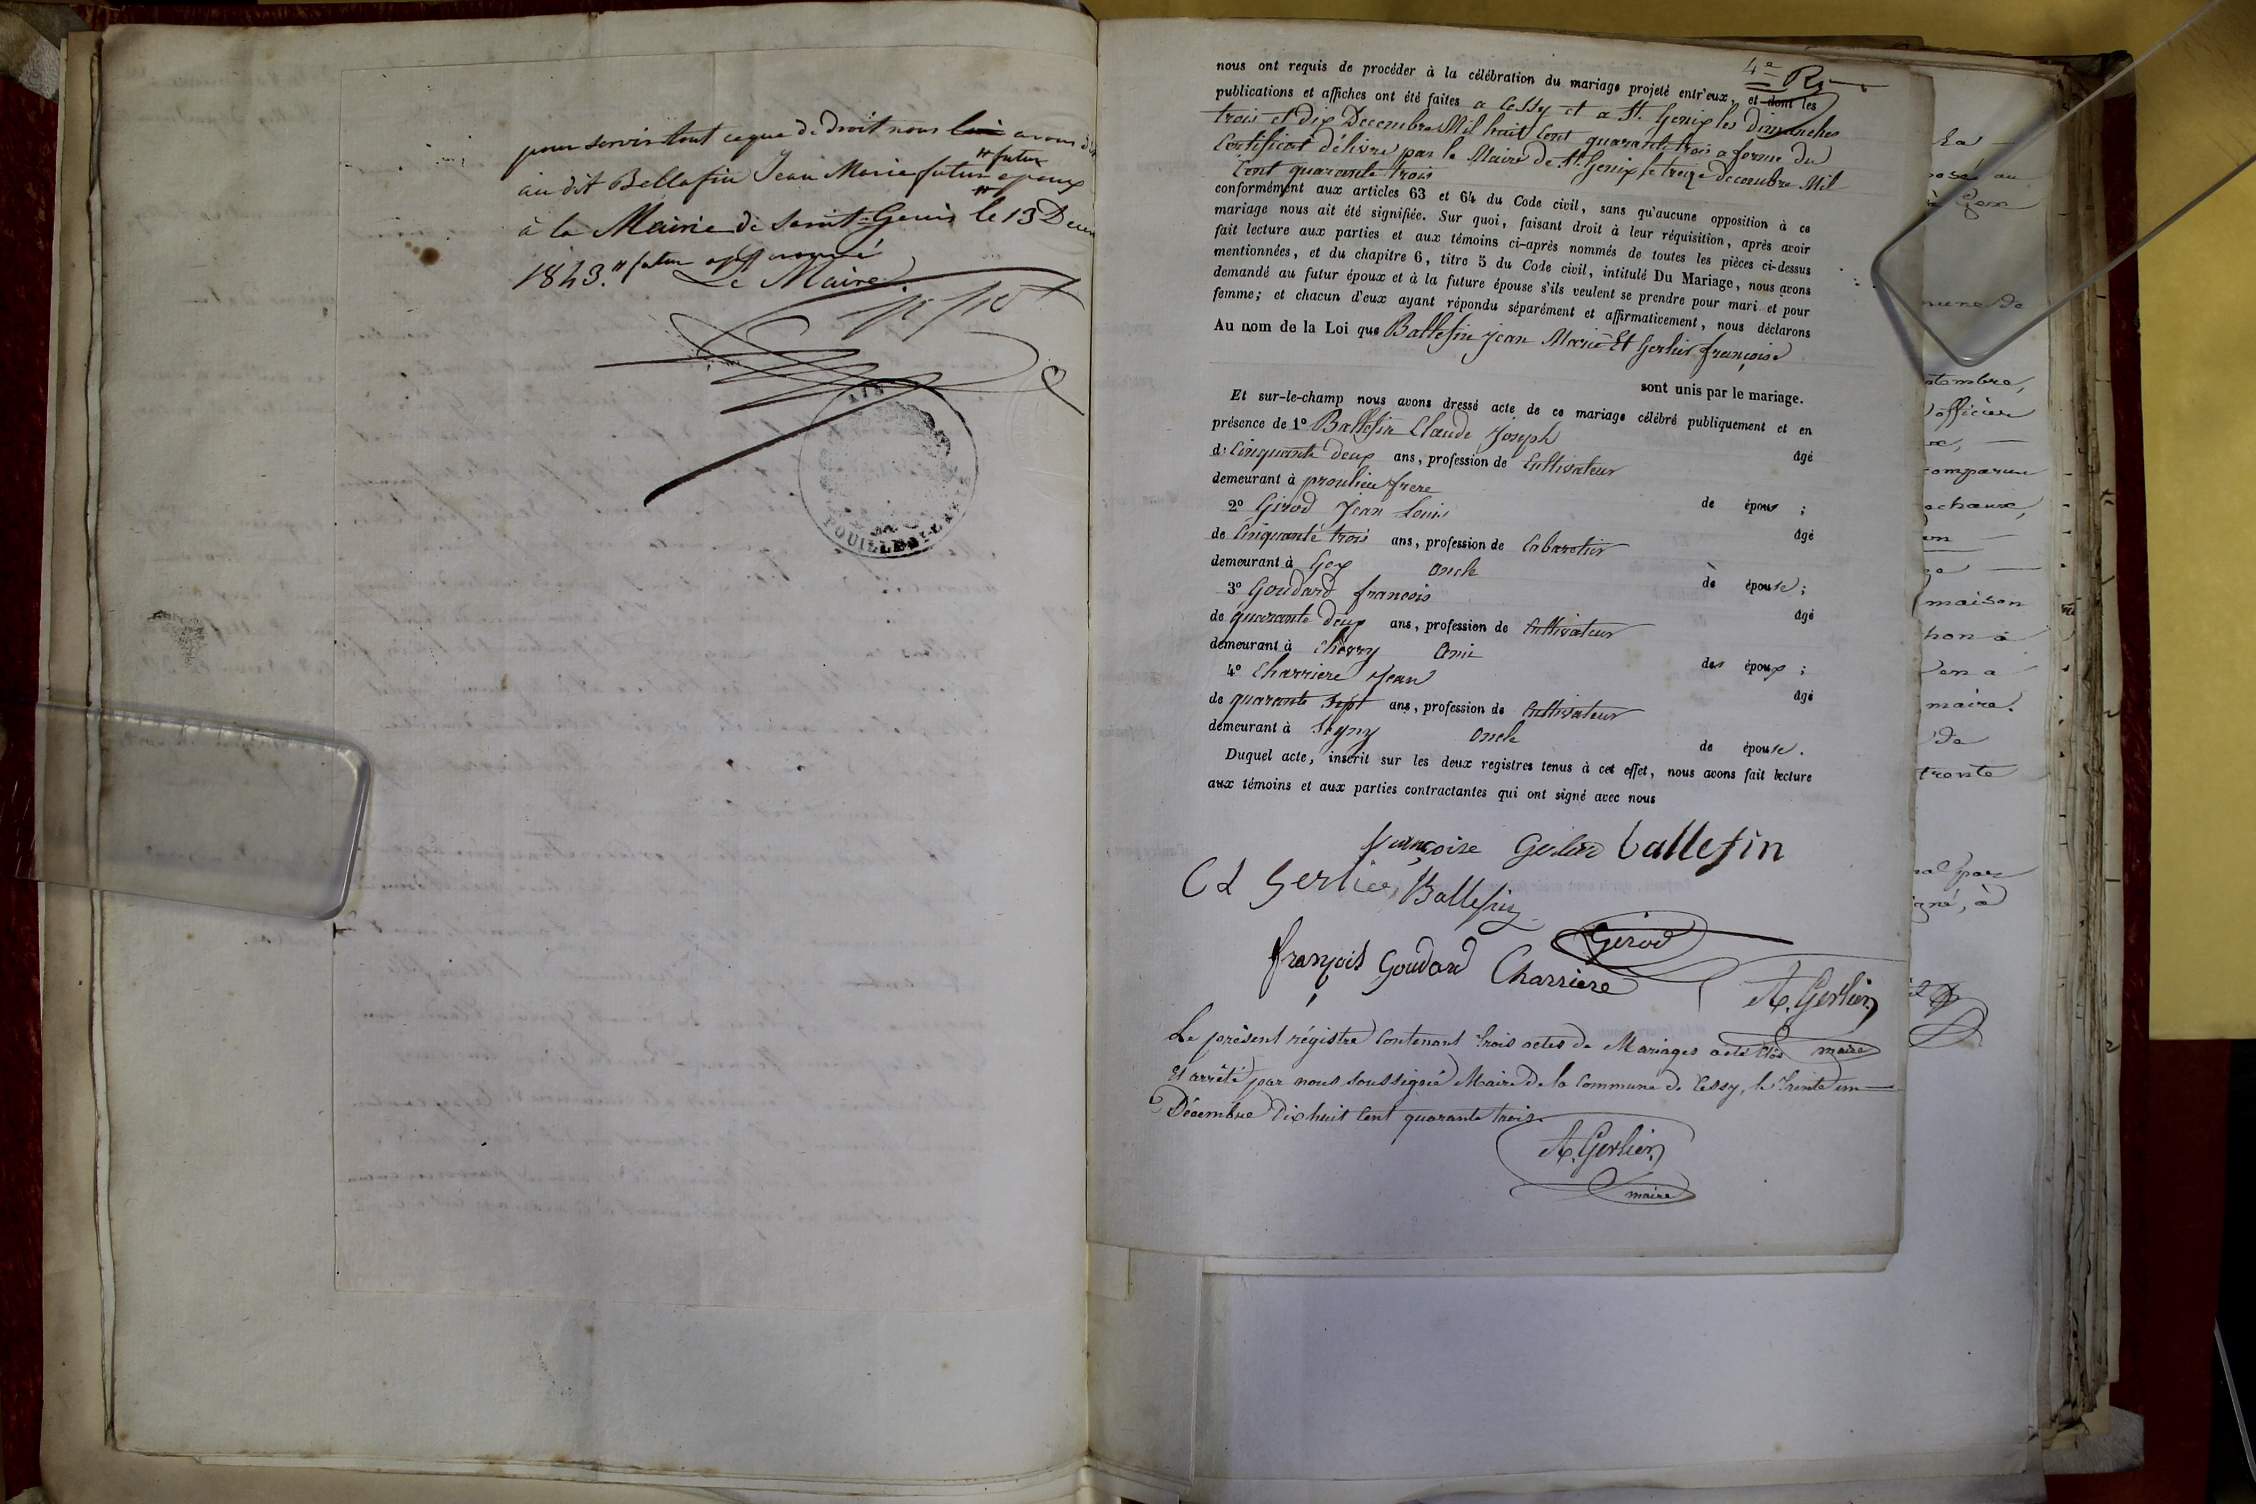 pour servir tout ce que de droit nous avons
au dit Bellafin Jean Marie futur epoux
"futur
à la Mairie de Saint-Genis le 13 Decem
1843. "futur approuvé
Le Maire
POUILLY
4e
nous ont requis de procéder à la célébration du mariage projeté entr'eux, et dont les
publications et affiches ont été faites a Cessy et a St. Genix les Dimanches
trois et dix Decembre Mil huit Cent quarante trois a forme du
Certificat délivré par le Maire de St. Genix le treize decembre Mil
Cent quarante trois
conformément aux articles 63 et 64 du Code civil, sans qu'aucune opposition à ce
mariage nous ait été signifiée. Sur quoi, faisant droit à leur réquisition, après avoir
fait lecture aux parties et aux témoins ci-après nommés de toutes les pièces ci-dessus
mentionnées, et du chapitre 6, titre 5 du Code civil, intitulé Du Mariage, nous avons
demandé au futur époux et à la future épouse s'ils veulent se prendre pour mari et pour
femme; et chacun d'eux ayant répondu séparément et affirmativement, nous déclarons
Au nom de la Loi que Ballefin Jean Marie Et Gerlier françoise
sont unis par le mariage.
Et sur-le-champ nous avons dressé acte de ce mariage célébré publiquement et en
présence de 1° Ballefin Claude Joseph âgé
de Cinquante deux ans, profession de Cultivateur
demeurant à proulieu frere de époux ;
2° Girod Jean Louis âgé
de Cinquante trois ans, profession de Cabaretier
demeurant à Gex Oncle de épouse ;
3° Goudard françois âgé
de quarante deux ans, profession de Cultivateur
demeurant à Chevry Ami des époux ;
4° Charriere Jean âgé
de quarante sept ans, profession de Cultivateur
demeurant à Segny Oncle de épouse.
Duquel acte, inscrit sur les deux registres tenus à cet effet, nous avons fait lecture
aux témoins et aux parties contractantes qui ont signé avec nous
françoise Gerlier ballefin
Cd Gerlier Ballefin
Girod
françois Goudard Charriere
A. Gerlier
maire
Le présent régistre Contenant trois actes de Mariages a été Clos
Et arrêté par nous soussigné Maire de la Commune de Cessy, le trente un
Décembre Dix huit Cent quarante trois.
A. Gerlier
maire
tembre,
officier
comparu
maison
maire.
de
trente